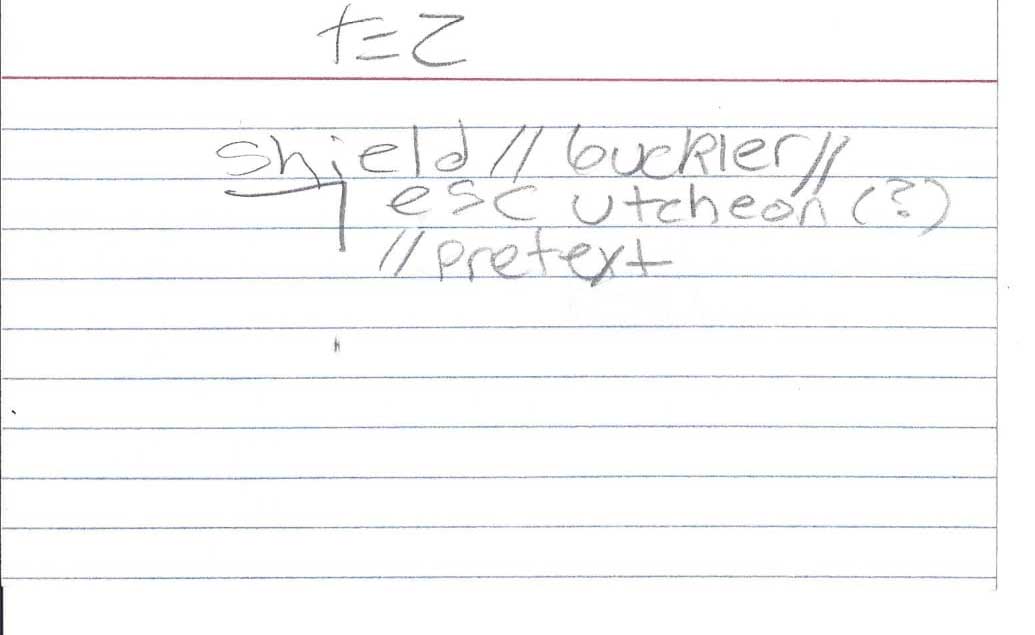 t=2
shield // buckler //
escutcheon (?)
// pretext